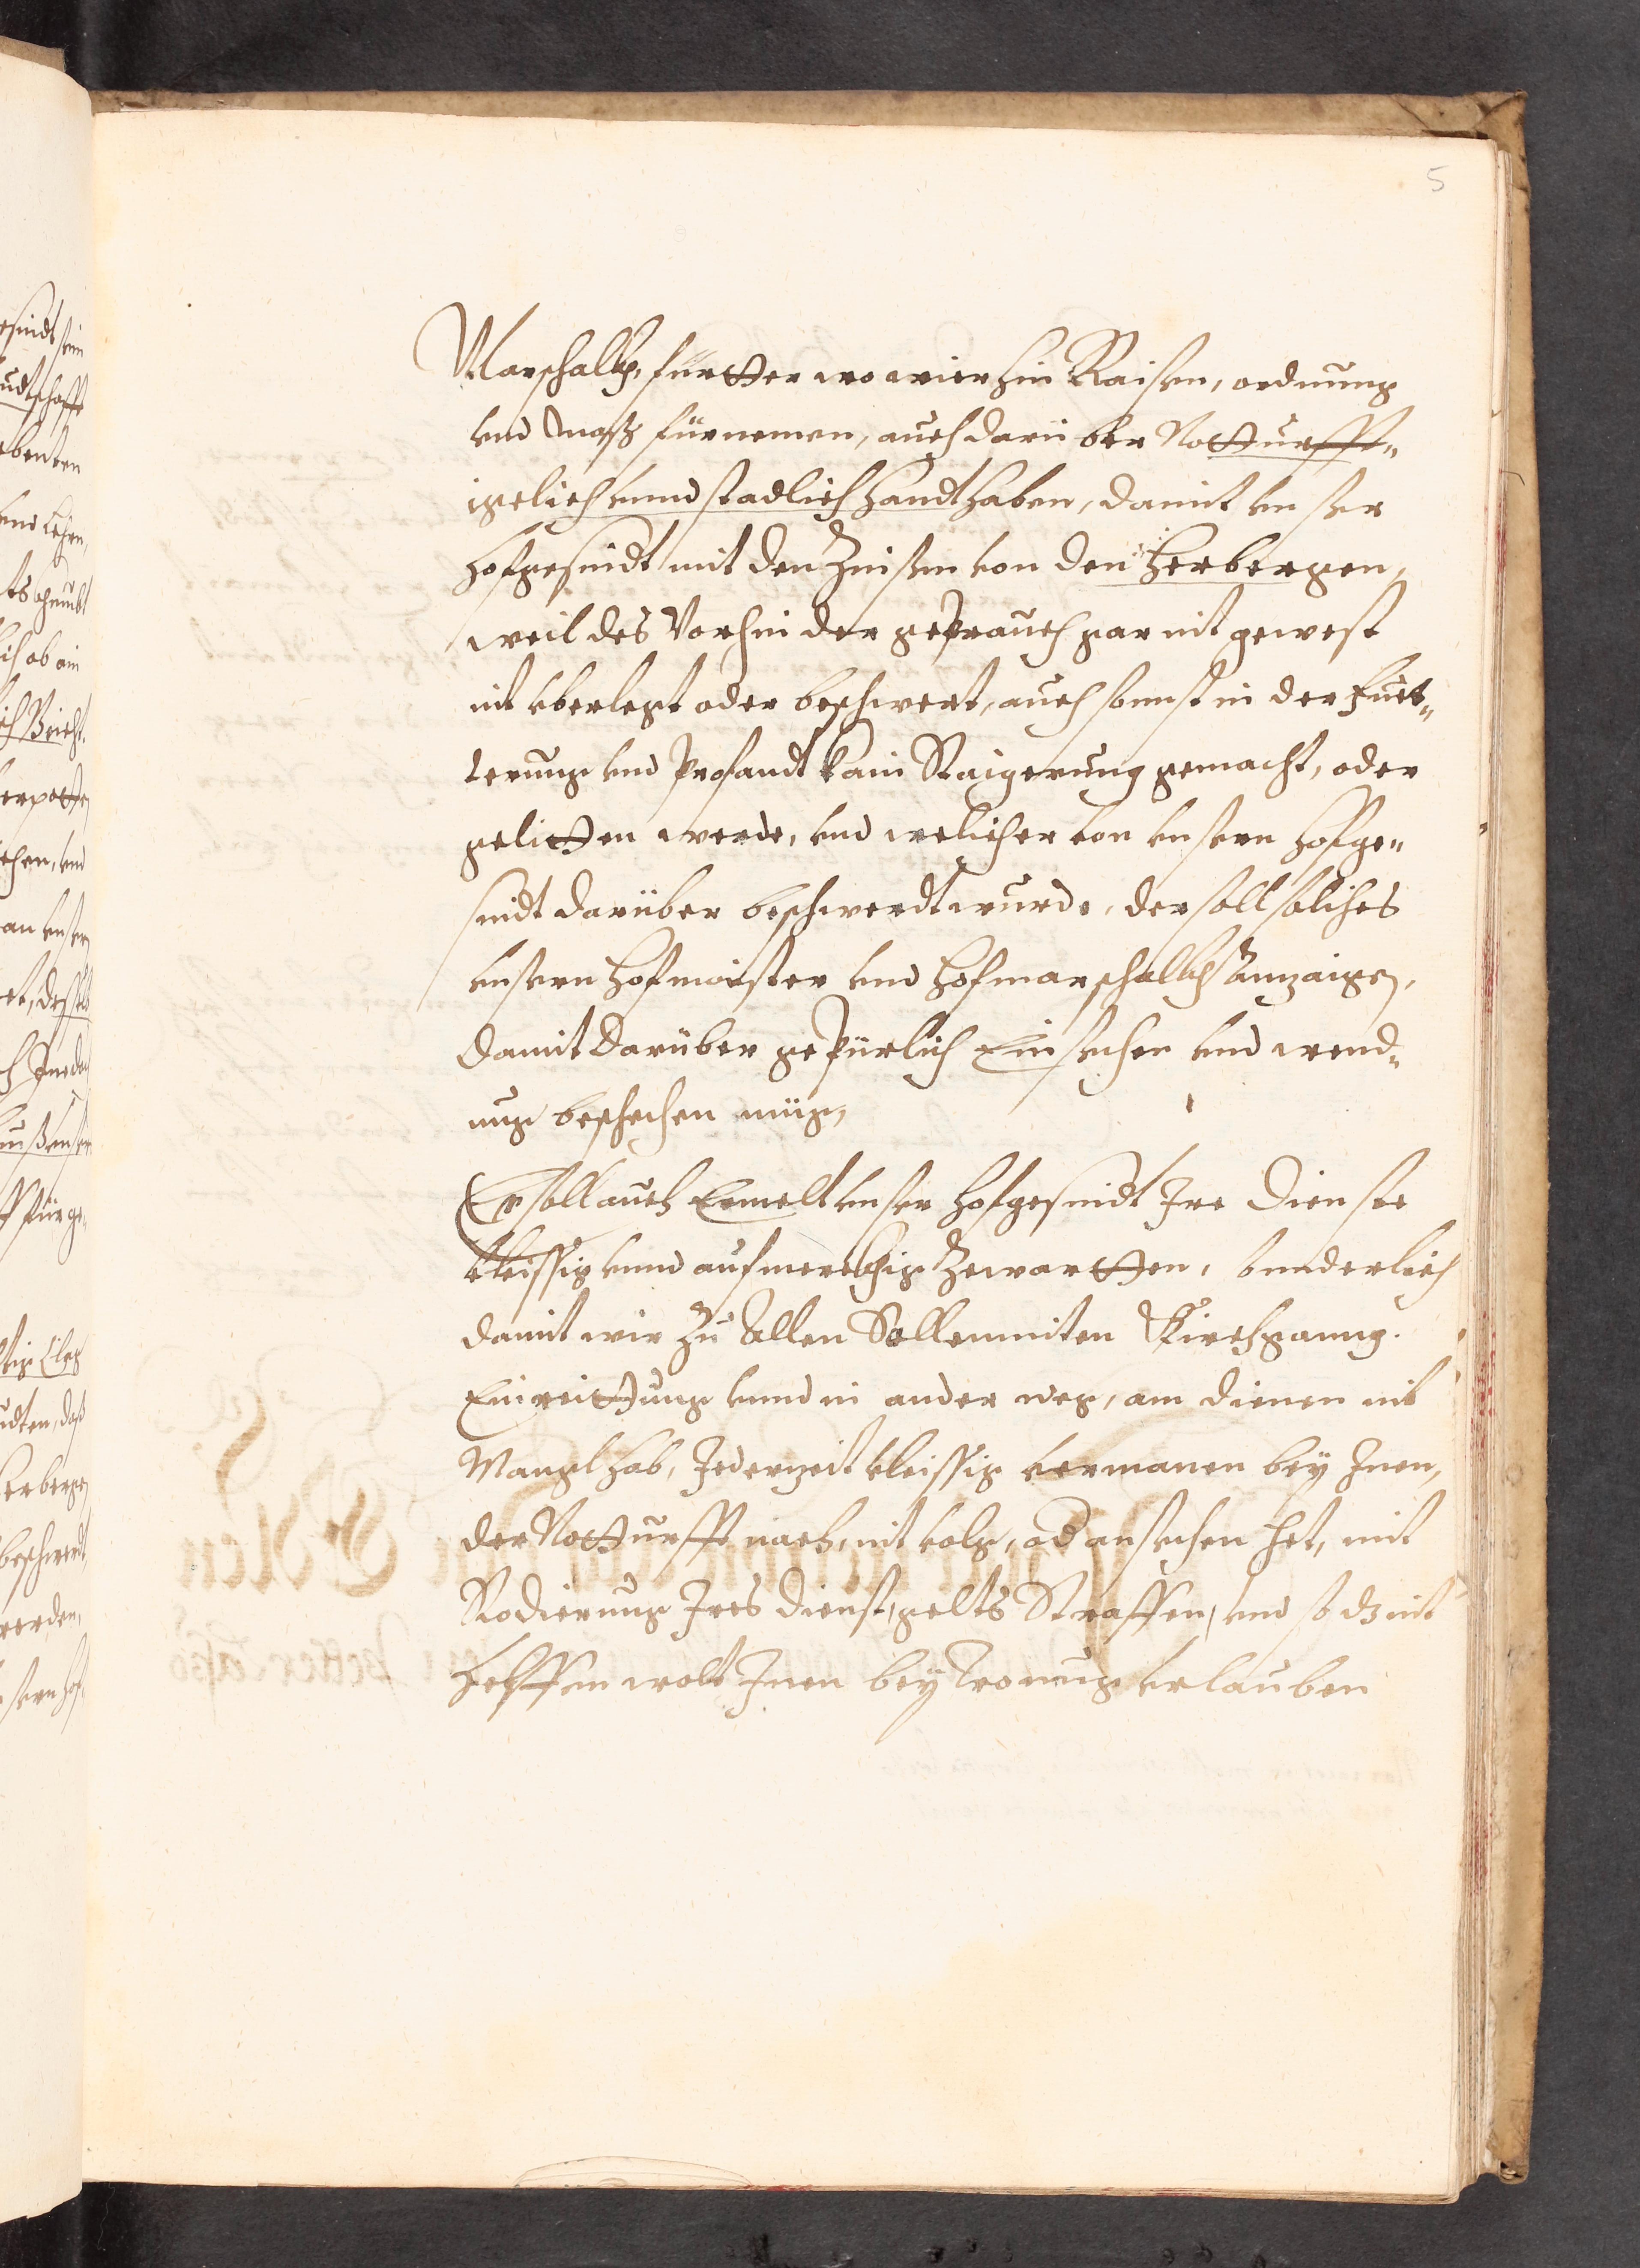 5
Marschalkh, fürtter wo wier hin Raisen, ordnung
vnd mass fürnemen, auch darüber Notturfft„
igelich vnnd stadlich handthaben, damit vnser
hofgesindt mit den Zinsen von den Herbergen,
weil des Vorhin der geprauch gar nit gewest
nit vberlegt oder beschwert, auch sonnst in der Fuet„
terung vnd Profandt kain Staigerung gemacht, oder
gelitten werde, vnd welicher von vnsern hofge„
sindt darüber beschwerdt wurde, der soll soliches
vnsern hofmaister vnd hofmarschalkh Anzaigen,
damit darüber gepürlich Einsechen vnd wend„
ung beschechen müg,
Er soll auch Ermelt vnser hofgesindt Jre Dienste
vleissig vnnd aufmerckhig Zewartten, sunderlich
damit wir Zu Allen Sollemniten Kirchganng.
Einreittung vnnd in ander weg, am dienen nit
Mangl hab, Jederzeit vleissig vermanen bey Jnen,
der Notturfft nach, nit volg, od ansechen het, mit
Rodierung Jres dienst, gelts Straffen, vnd so dz nit
helffen wolt Jnen bey Tronung verlauben